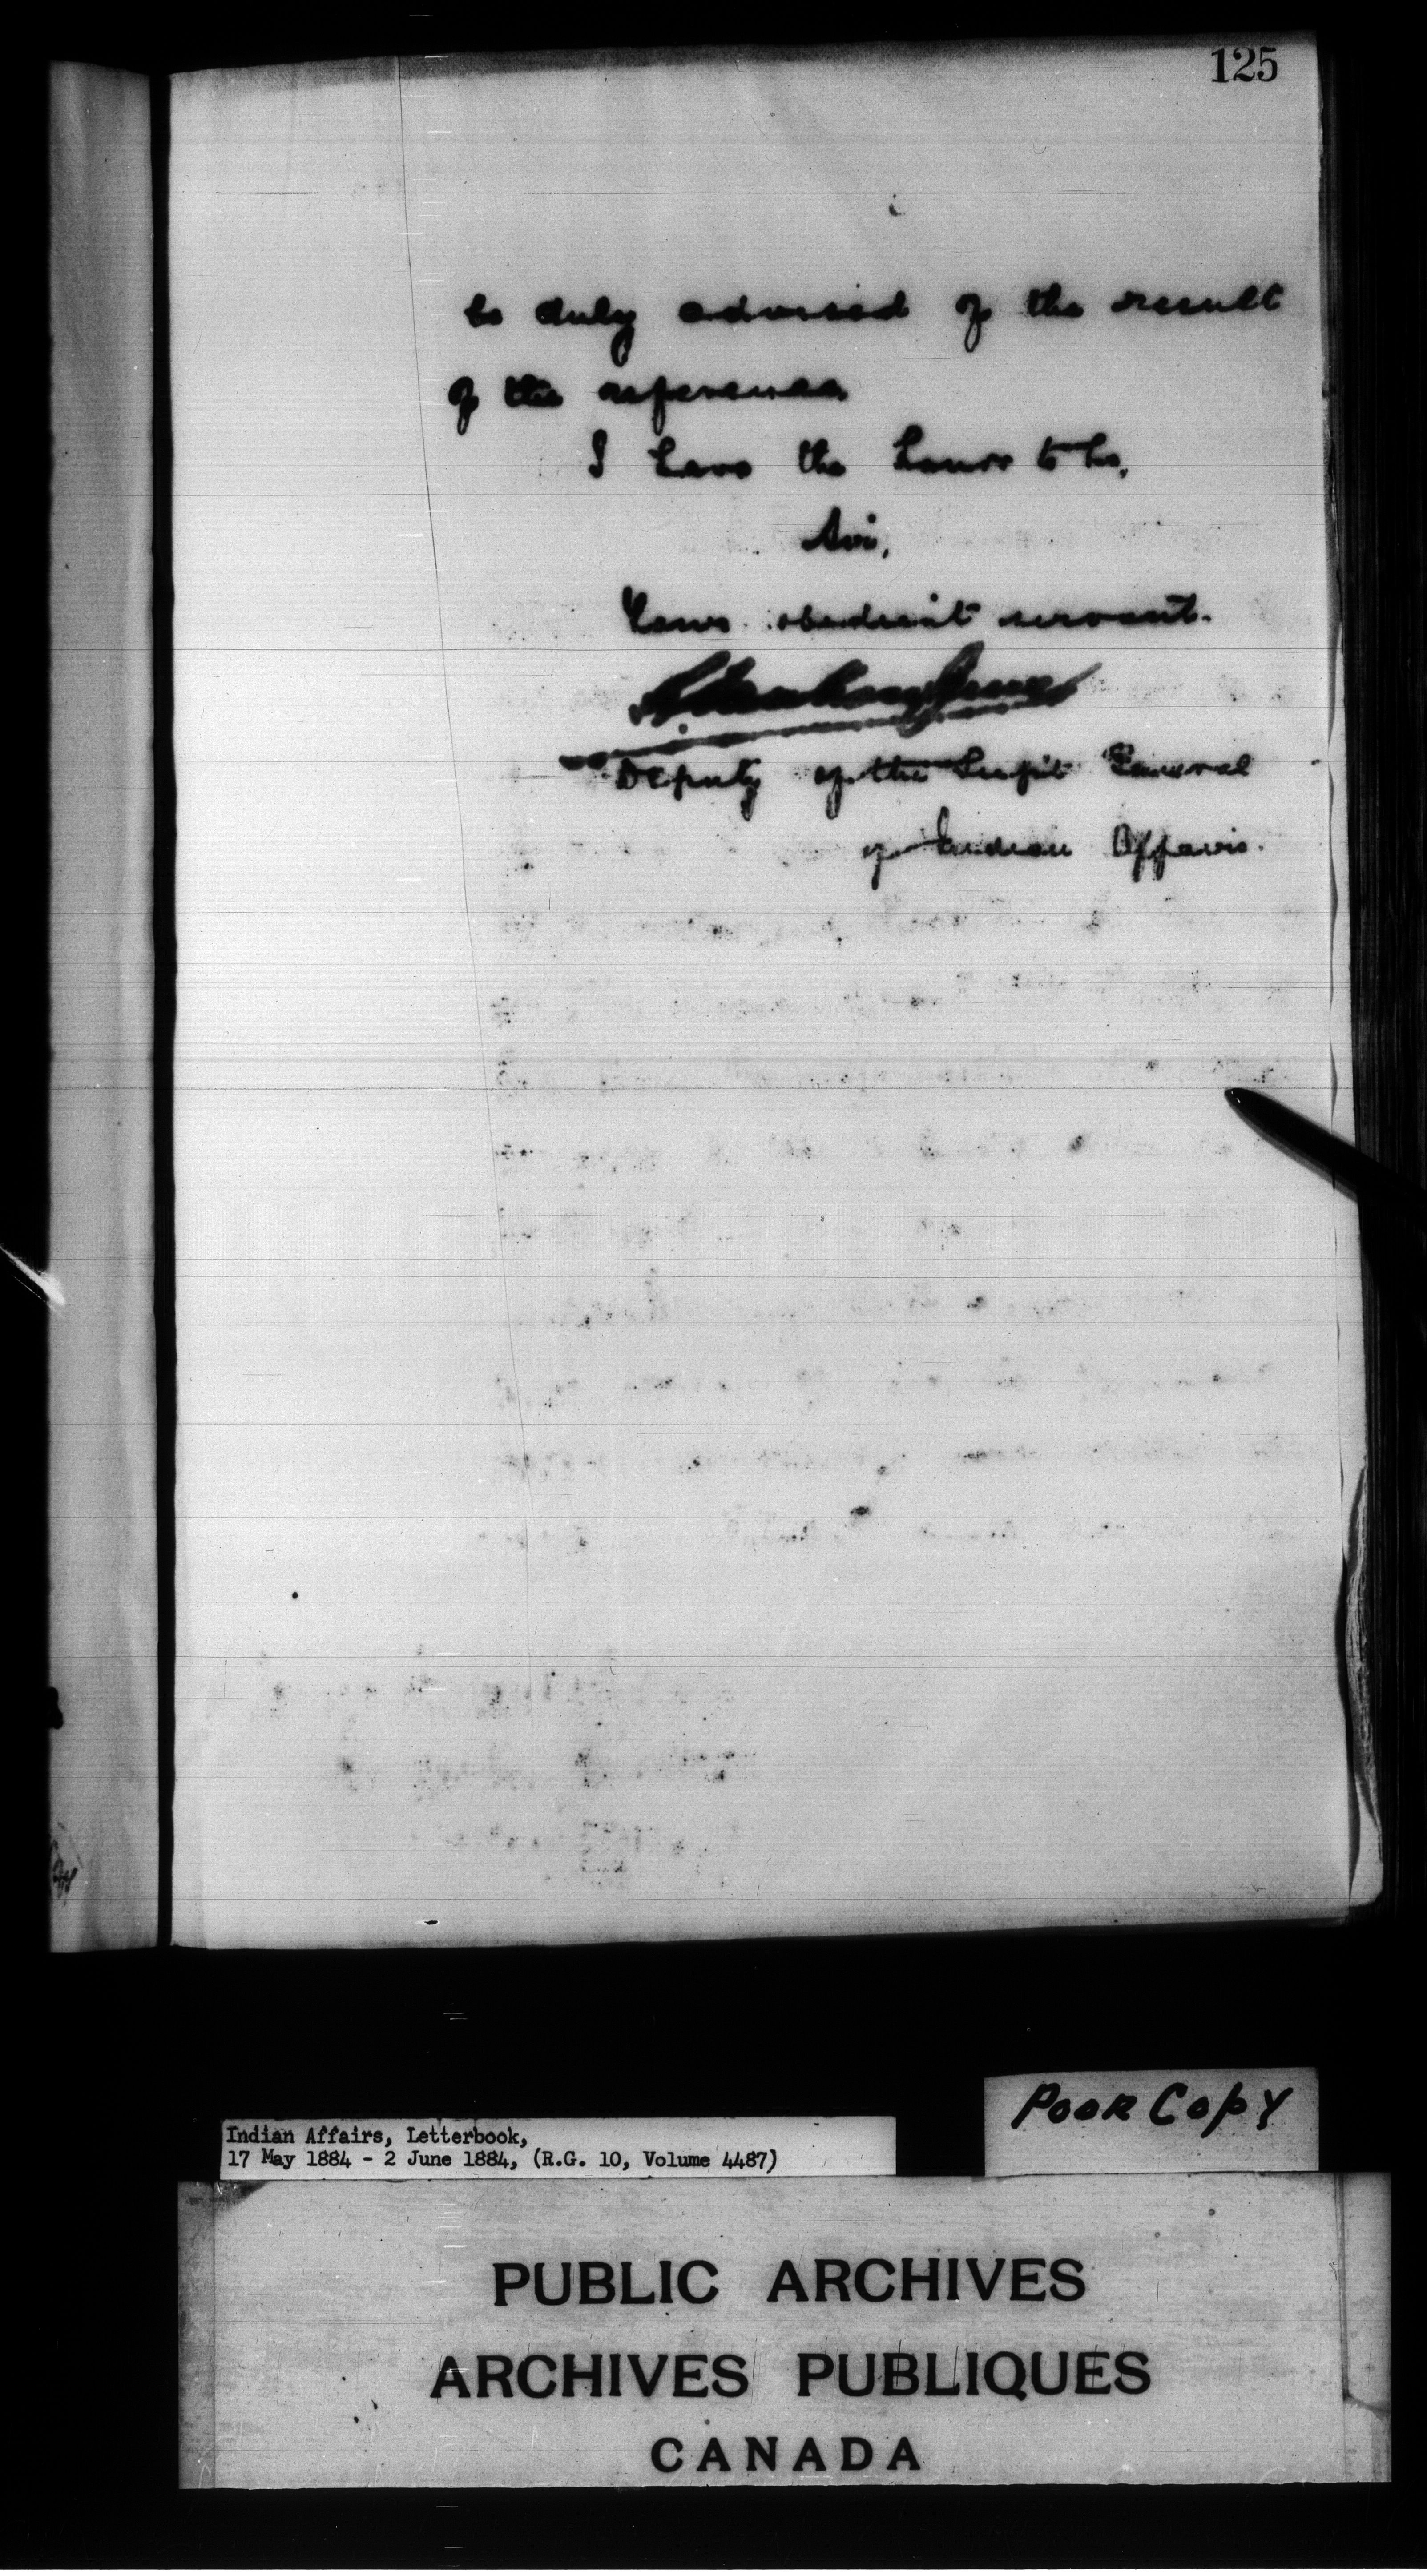 125
be duly advised of the result
of the reference
I have the honor to be,
Sir,
Your obedient servant.
Deputy of the Supt General
of Indian Affairs.
Poor Copy
Indian Affairs, Letterbook,
17 May 1884 - 2 June 1884, (R.G. 10, Volume 4487)
PUBLIC ARCHIVES
ARCHIVES PUBLIQUES
CANADA